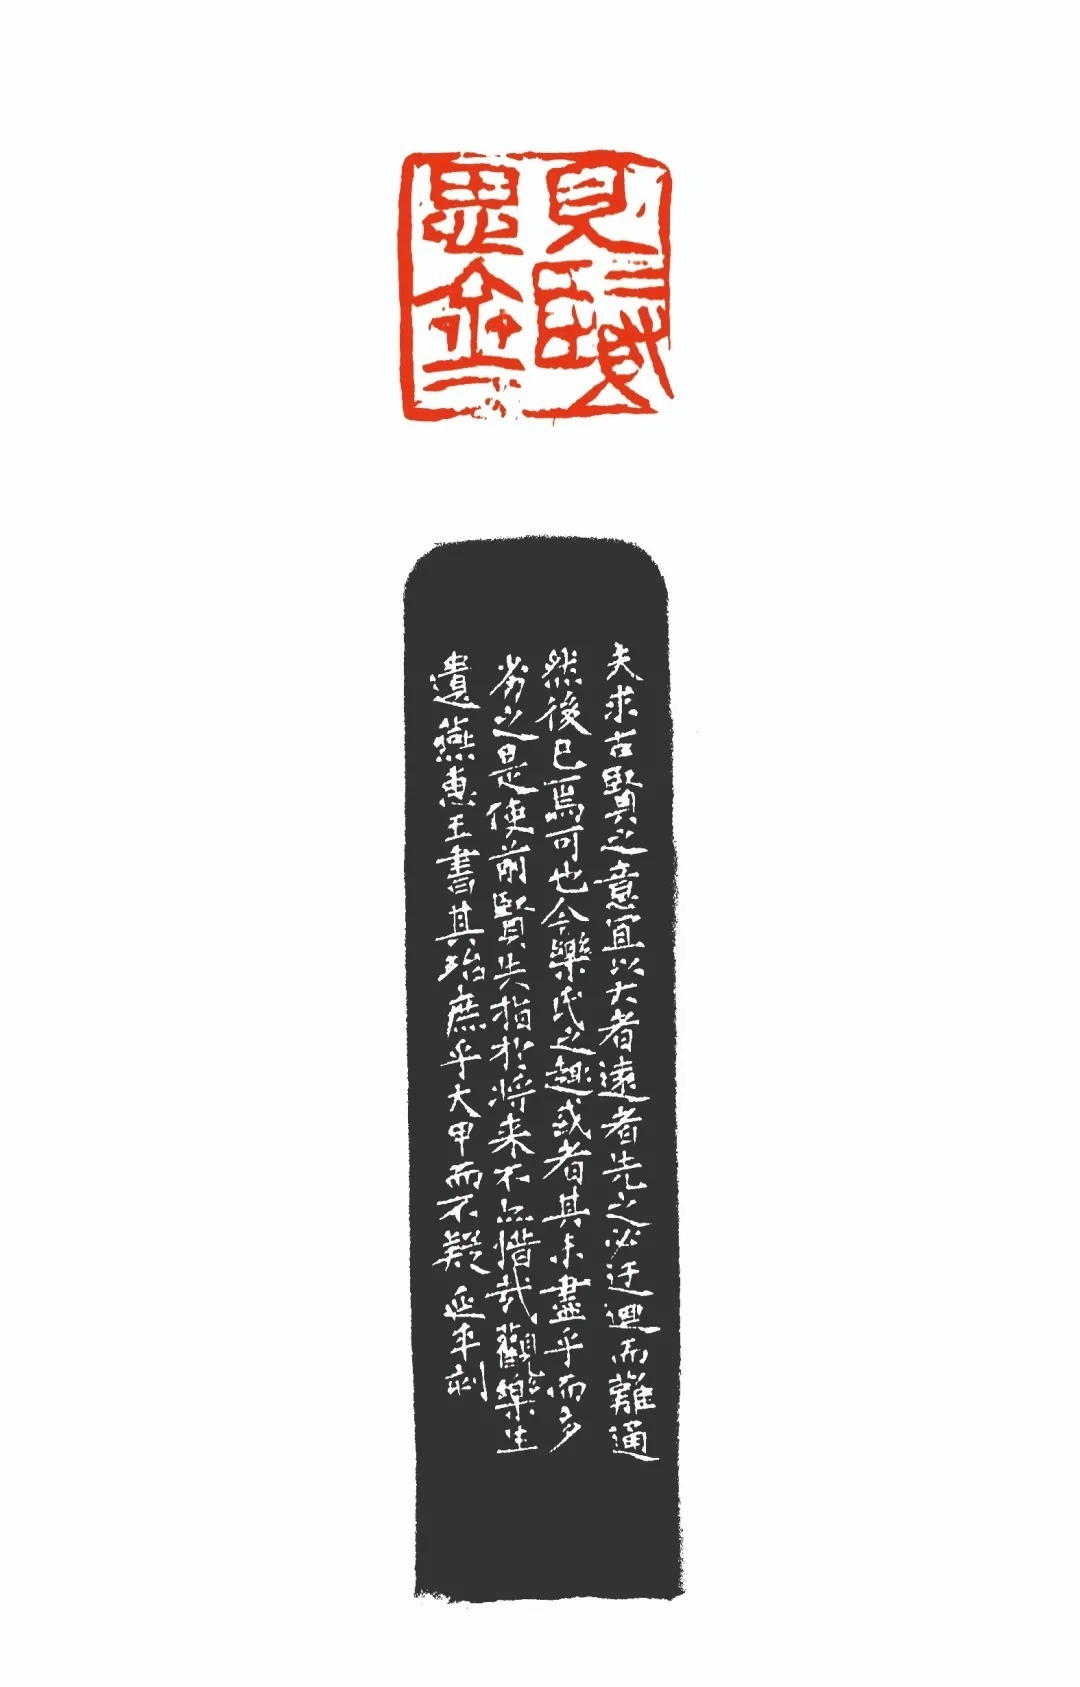 見賢
思齊
夫求古賢之意宜以大者遠者先之必迂迴而難通
然後已焉可也今樂氏之趣或者其未盡乎而多
劣之是使前賢失指於將来不亦惜哉觀樂生
遺燕惠王書其殆庶乎大甲而不疑 延年刻